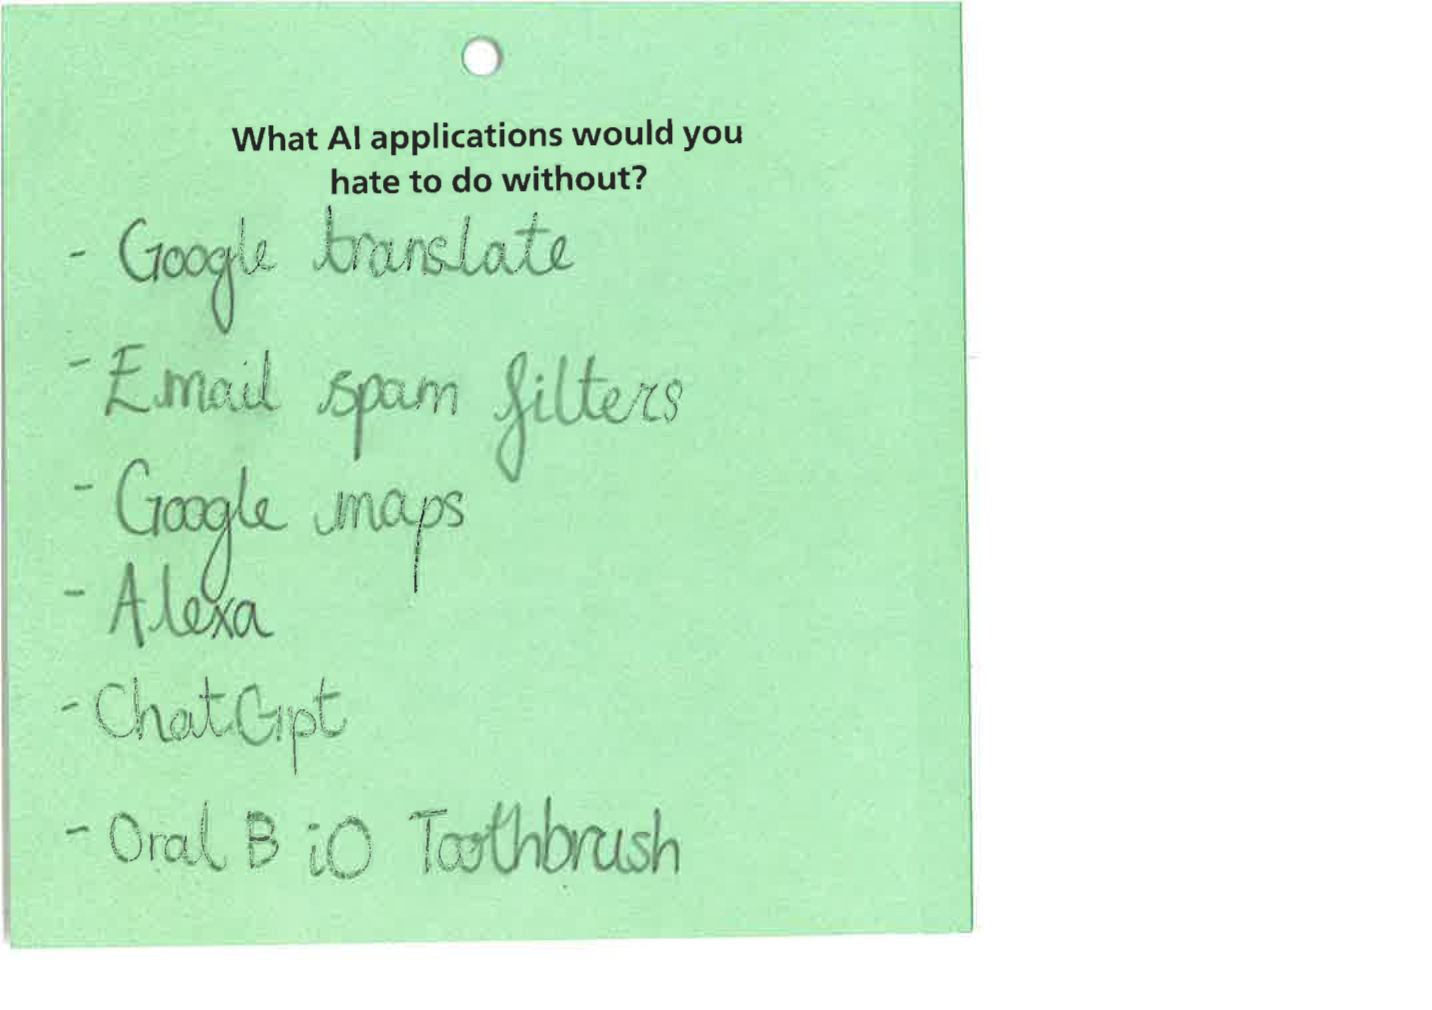 What AI applications would you
hate to do without?
- Google translate
- Email spam filters
- Google maps
- Alexa
- ChatGpt
- Oral B iO Toothbrush